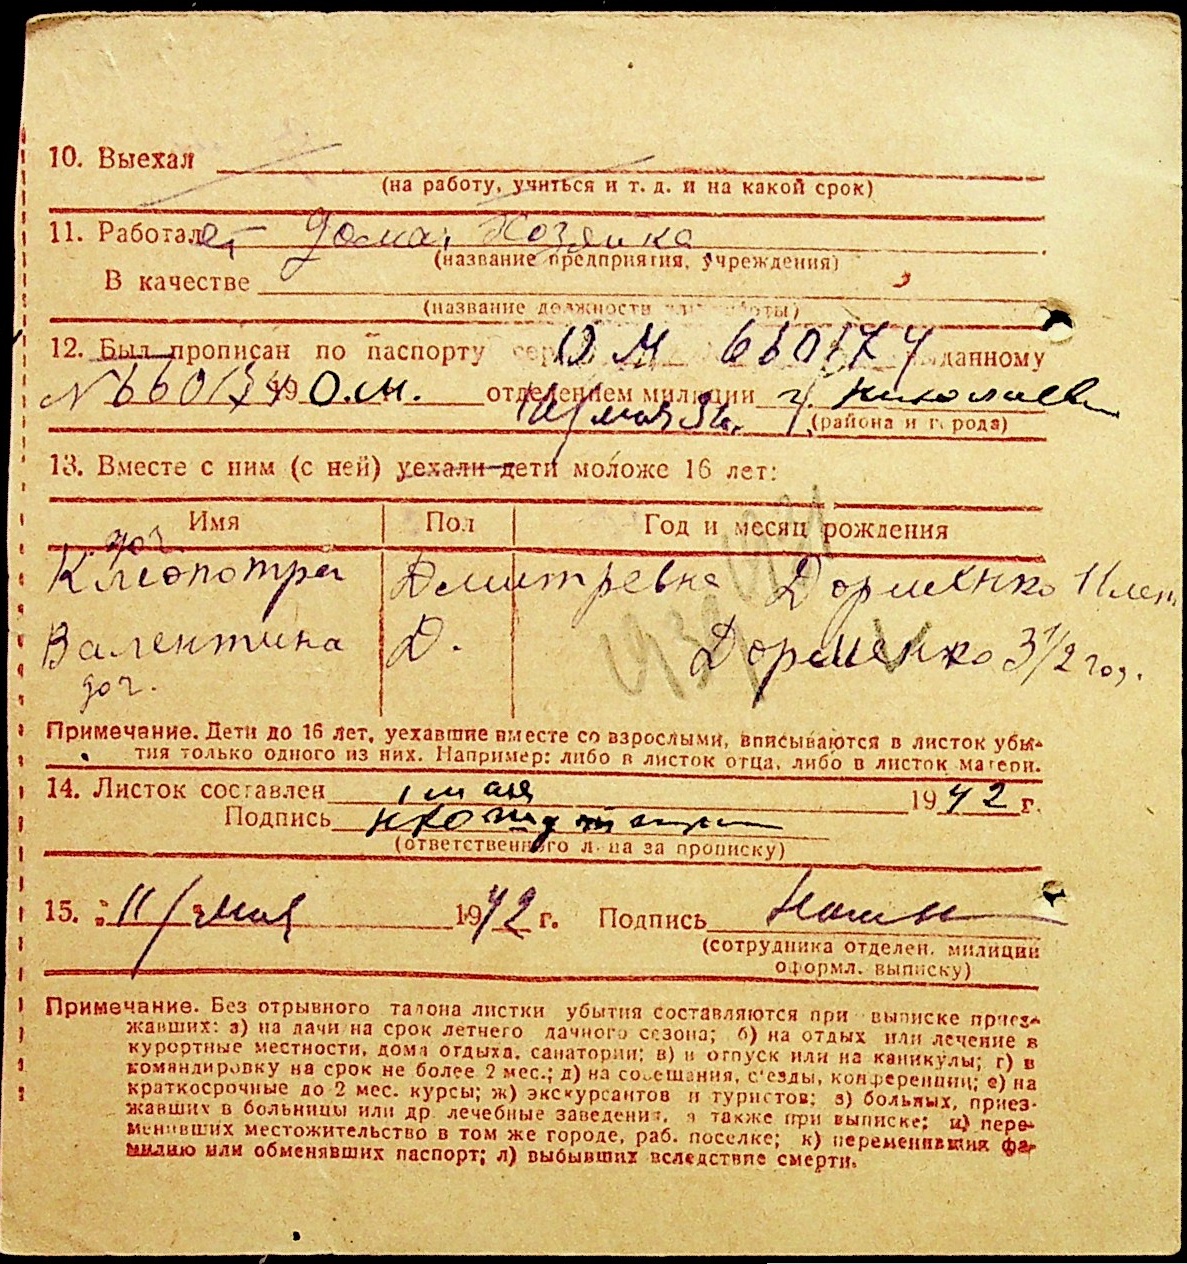 10. Выехал
(на работу, учиться и т. д. и на какой срок)
11. Работает дома, хозяйка
(название предприятия, учреждения)
В качестве
(название должности или работы)
12. Был прописан по паспорту серии ЮМ 660174 выданному
N 660174 19 О.М. отделением милиции г. Николаев
мая 36г. (района и города)
13. Вместе с ним (с ней) уехали дети моложе 16 лет:
Имя Пол Год и месяц рождения
1931
доч.
Клеопотра Дмитревна Дорменко 11 лет
1939
Валентина Д. Дорменко 3 1/2 год.
доч.
Примечание. Дети до 16 лет, уехавшие вместе со взрослыми, вписываются в листок убы-
тия только одного из них. Например: либо в листок отца, либо в листок матери.
14. Листок составлен 1 мая 1942 г.
Подпись
(ответственного лица за прописку)
15. 11/ мая 1942 г. Подпись
(сотрудника отделен. милиции
оформл. выписку)
Примечание. Без отрывного талона листки убытия составляются при выписке приез-
жавших: а) на дачи на срок летнего дачного сезона; б) на отдых или лечение в
курортные местности, дома отдыха, санатории; в) в отпуск или на каникулы; г) в
командировку на срок не более 2 мес.; д) на совещания, с'езды, конференции; е) на
краткосрочные до 2 мес. курсы; ж) экскурсантов и туристов; з) больных, приез-
жавших в больницы или др. лечебные заведения, а также при выписке; и) пере-
менивших местожительство в том же городе, раб. поселке; к) переменивших фа-
милию или обменявших паспорт; л) выбывших вследствие смерти.